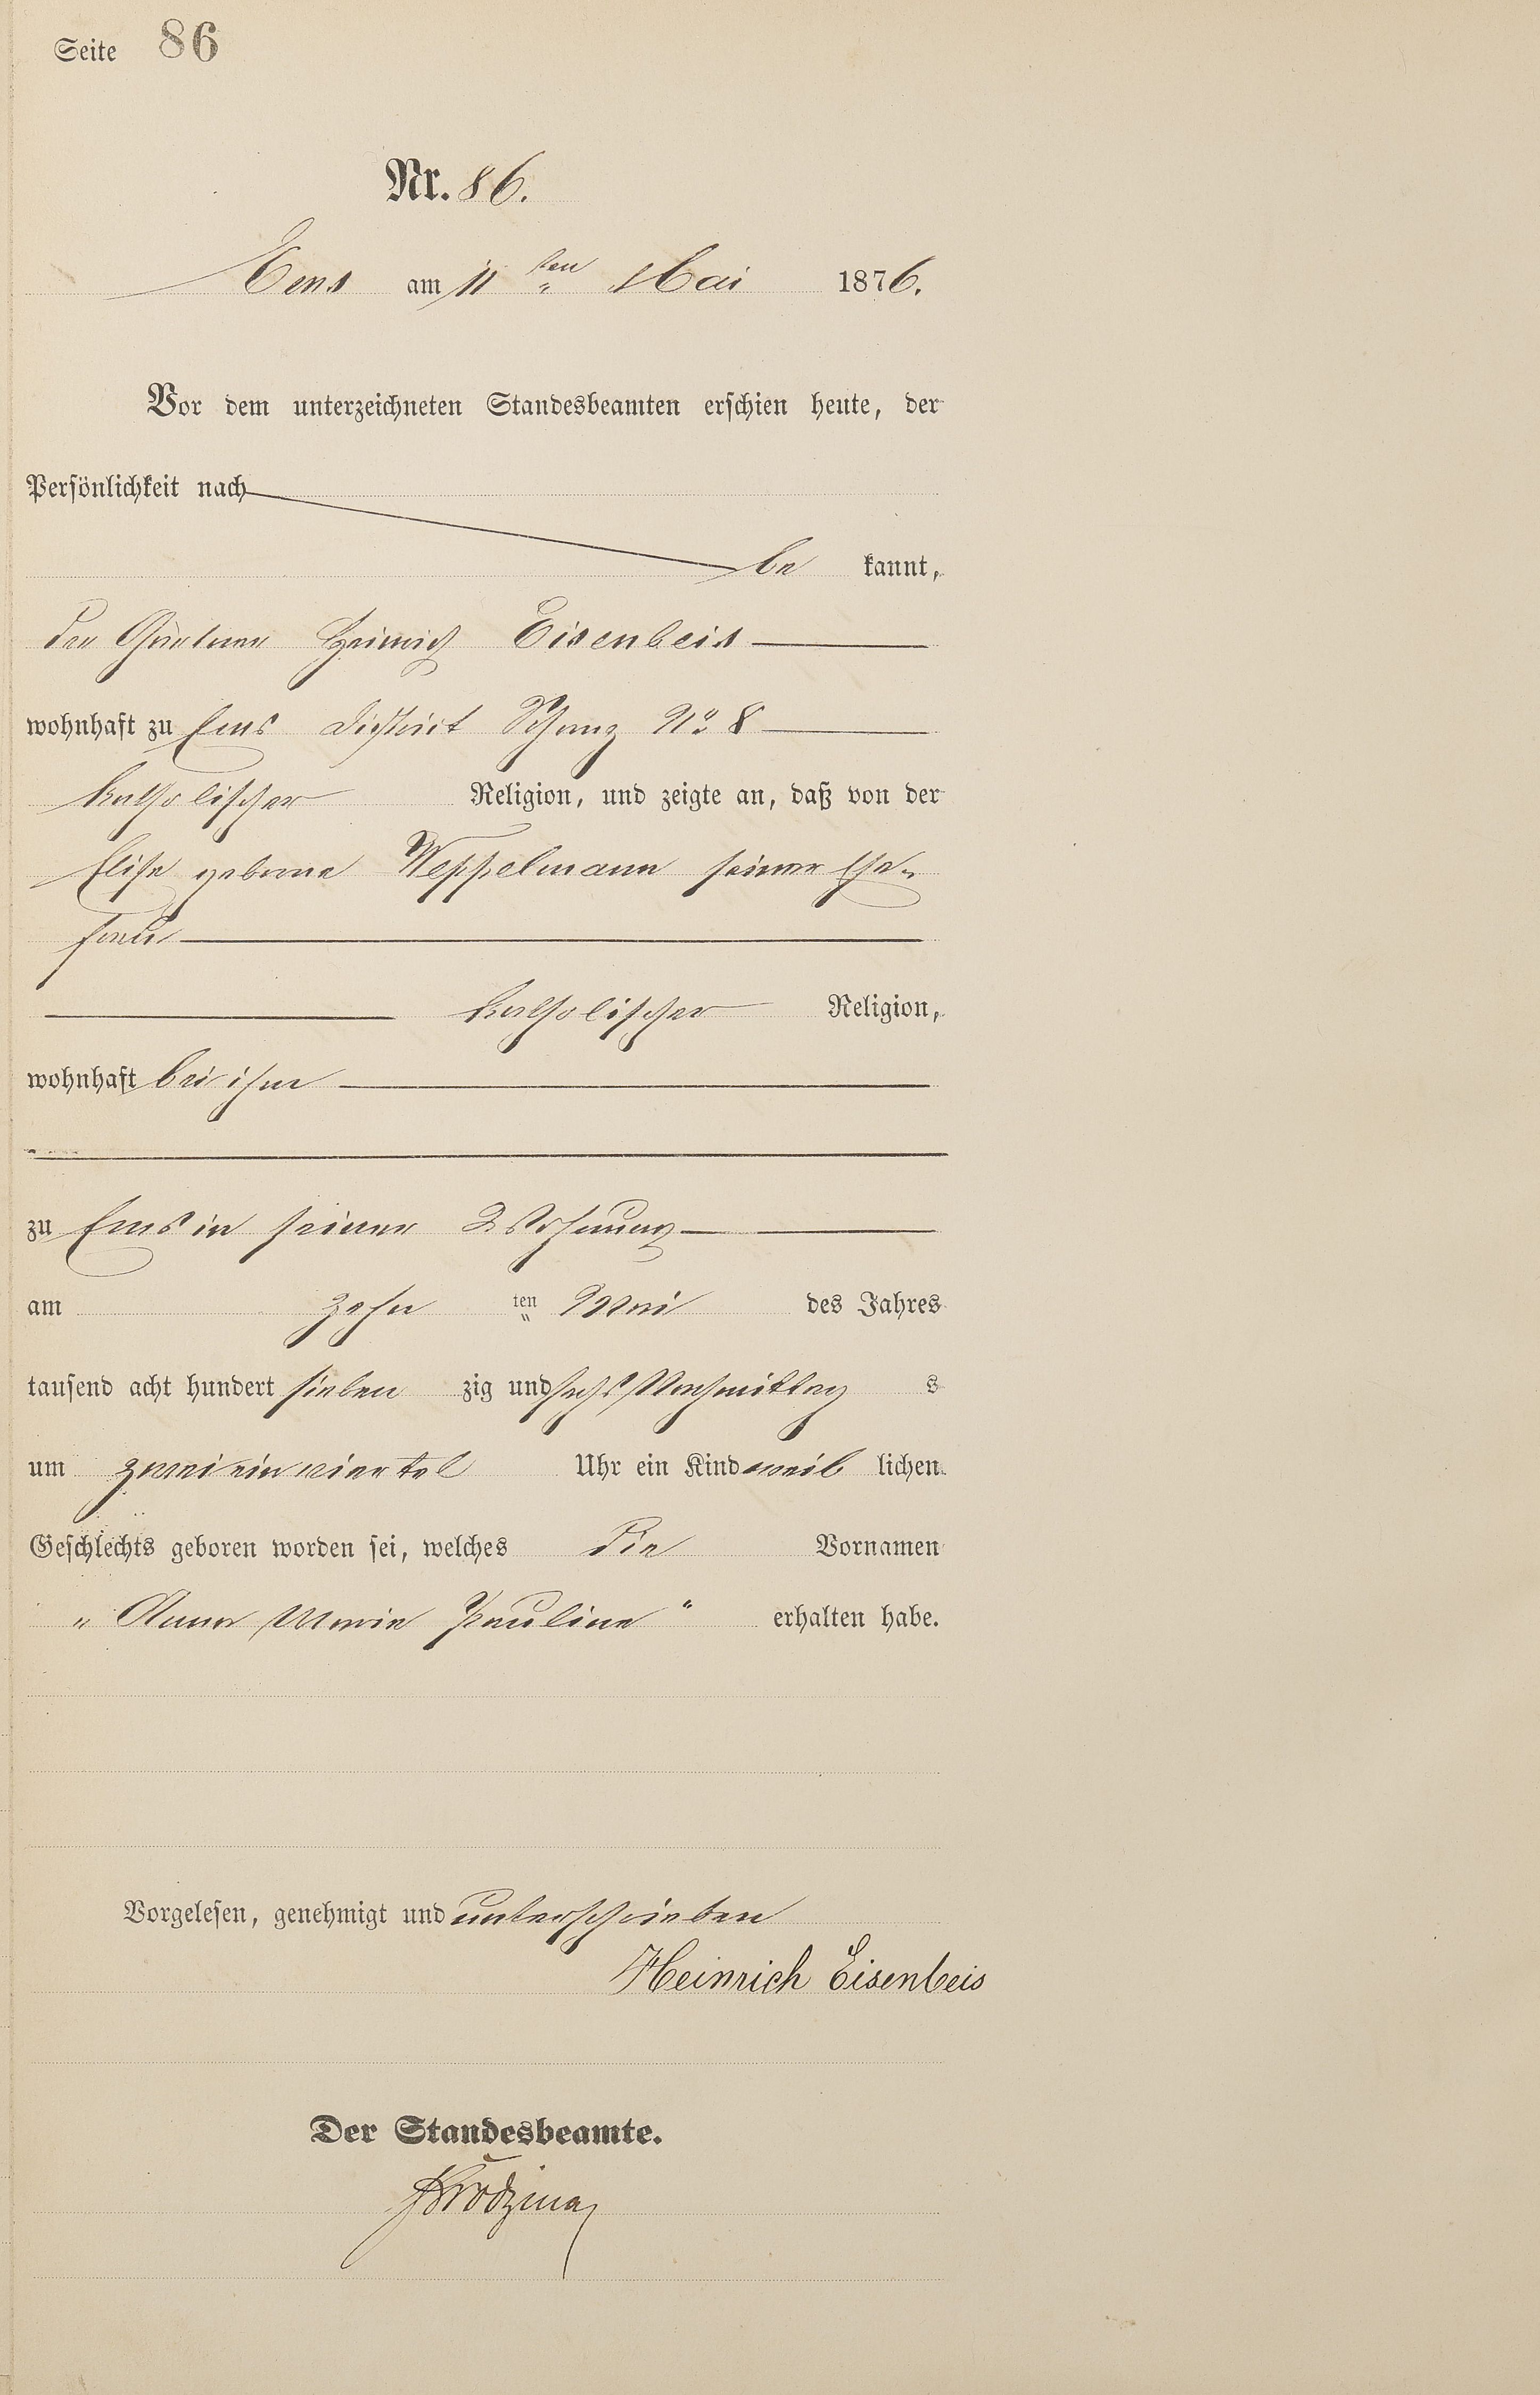 Seite 86
Nr. 86.
Ems am 11 ten Mai 1876.
Vor dem unterzeichneten Standesbeamten erschien heute, der
Persönlichkeit nach
be kannt,
der Gärtner Heinrich Eisenbeis
wohnhaft zu Ems District Schanz No 8
katholischer Religion, und zeigte an, daß von der
Elise geborne Weppelmann seiner Ehe-
frau
katholischer Religion,
wohnhaft bei ihm
zu Ems in seiner Wohnung
am zehn ten Mai des Jahres
tausend acht hundert sieben zig und sechs Nachmittag s
um zwei ein viertel Uhr ein Kind weib lichen
Geschlechts geboren worden sei, welches die Vornamen
„Anna Maria Pauline“ erhalten habe.
Vorgelesen, genehmigt und unterschrieben
Heinrich Eisenbeis
Der Standesbeamte.